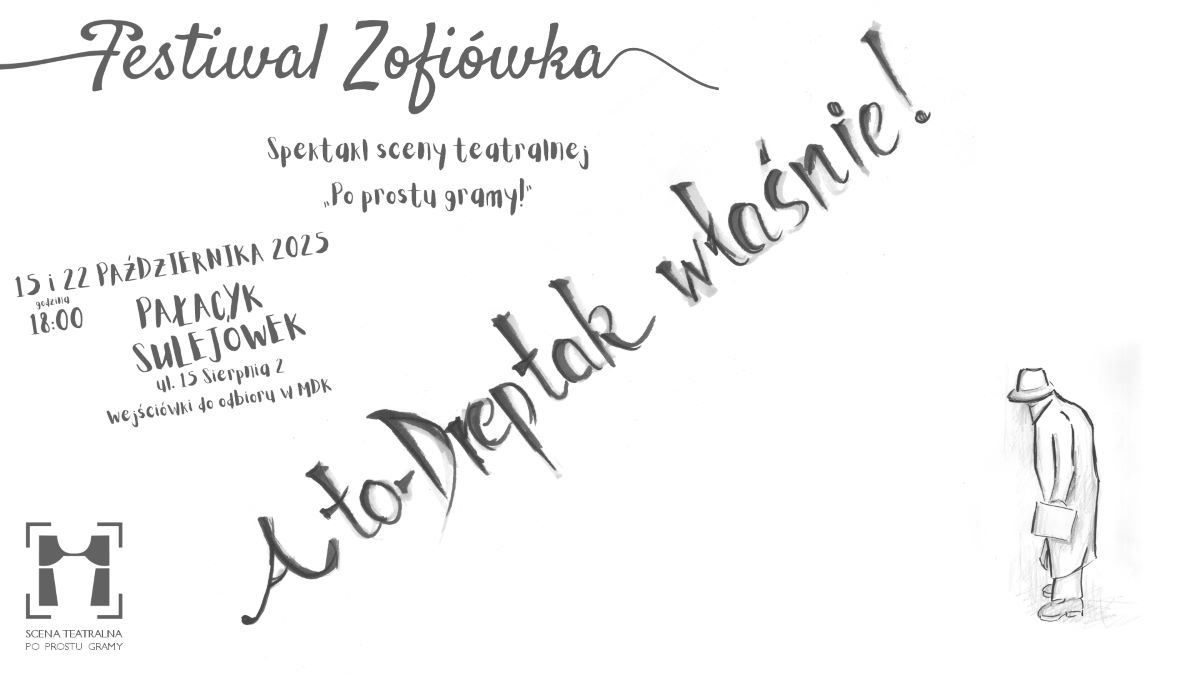 Festiwal Zofiówka
Spektakl sceny teatralnej
„Po prostu gramy!”
15 i 22 PAŹDZIERNIKA 2025
godzina
18:00
PAŁACYK
SULEJÓWEK
ul. 15 Sierpnia 2
Wejściówki do odbioru w MDK
A to-Dreptak właśnie!
SCENA TEATRALNA
PO PROSTU GRAMY